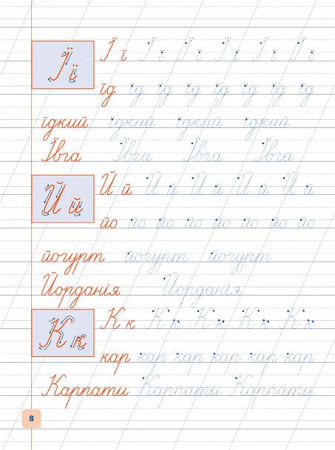 Ї ї Ї ї Ї ї Ї ї Ї ї Ї ї
Ї ї
їд їд їд їд їд їд їд
їдкий їдкий їдкий їдкий
Ївга Ївга Ївга Ївга
Й й Й й Й й Й й Й й
Й й
йо йо йо йо йо йо йо
йогурт йогурт йогурт
Йорданія Йорданія
К к К к К к К к К к
К к
кар кар кар кар кар кар
Карпати Карпати Карпати
8